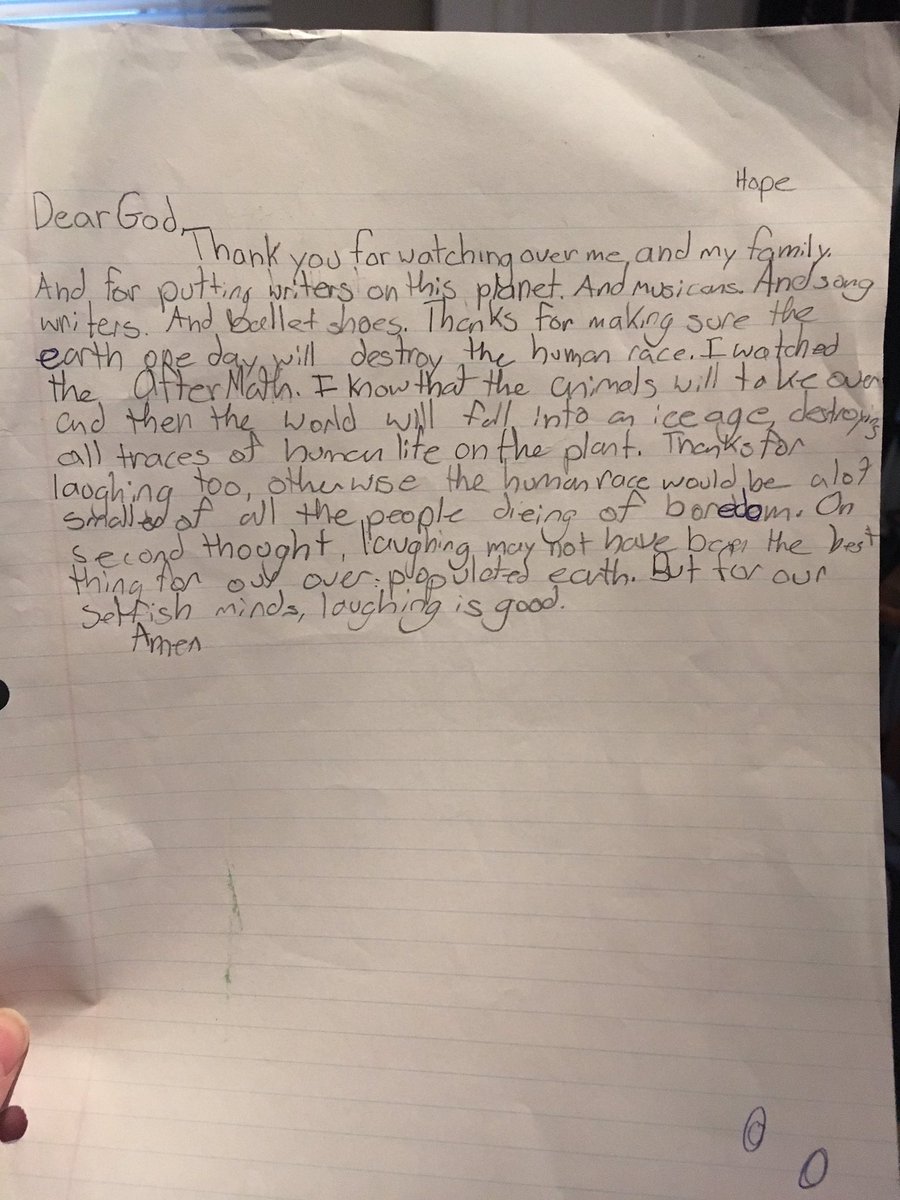 Hope
Dear God,
Thank you for watching over me, and my family.
And for putting writers on this planet. And musicans. And song
writers. And ballet shoes. Thanks for making sure the
earth one day will destroy the human race. I watched
the AfterMath. I know that the animals will take over
and then the world will fall into an ice age, destroying
all traces of human life on the plant. Thanks for
laughing too, otherwise the human race would be a lot
of all the people dieing of boredom. On
second thought, laughing may not have been the best
thing for our over populated earth. But for our
selfish minds, laughing is good.
Amen